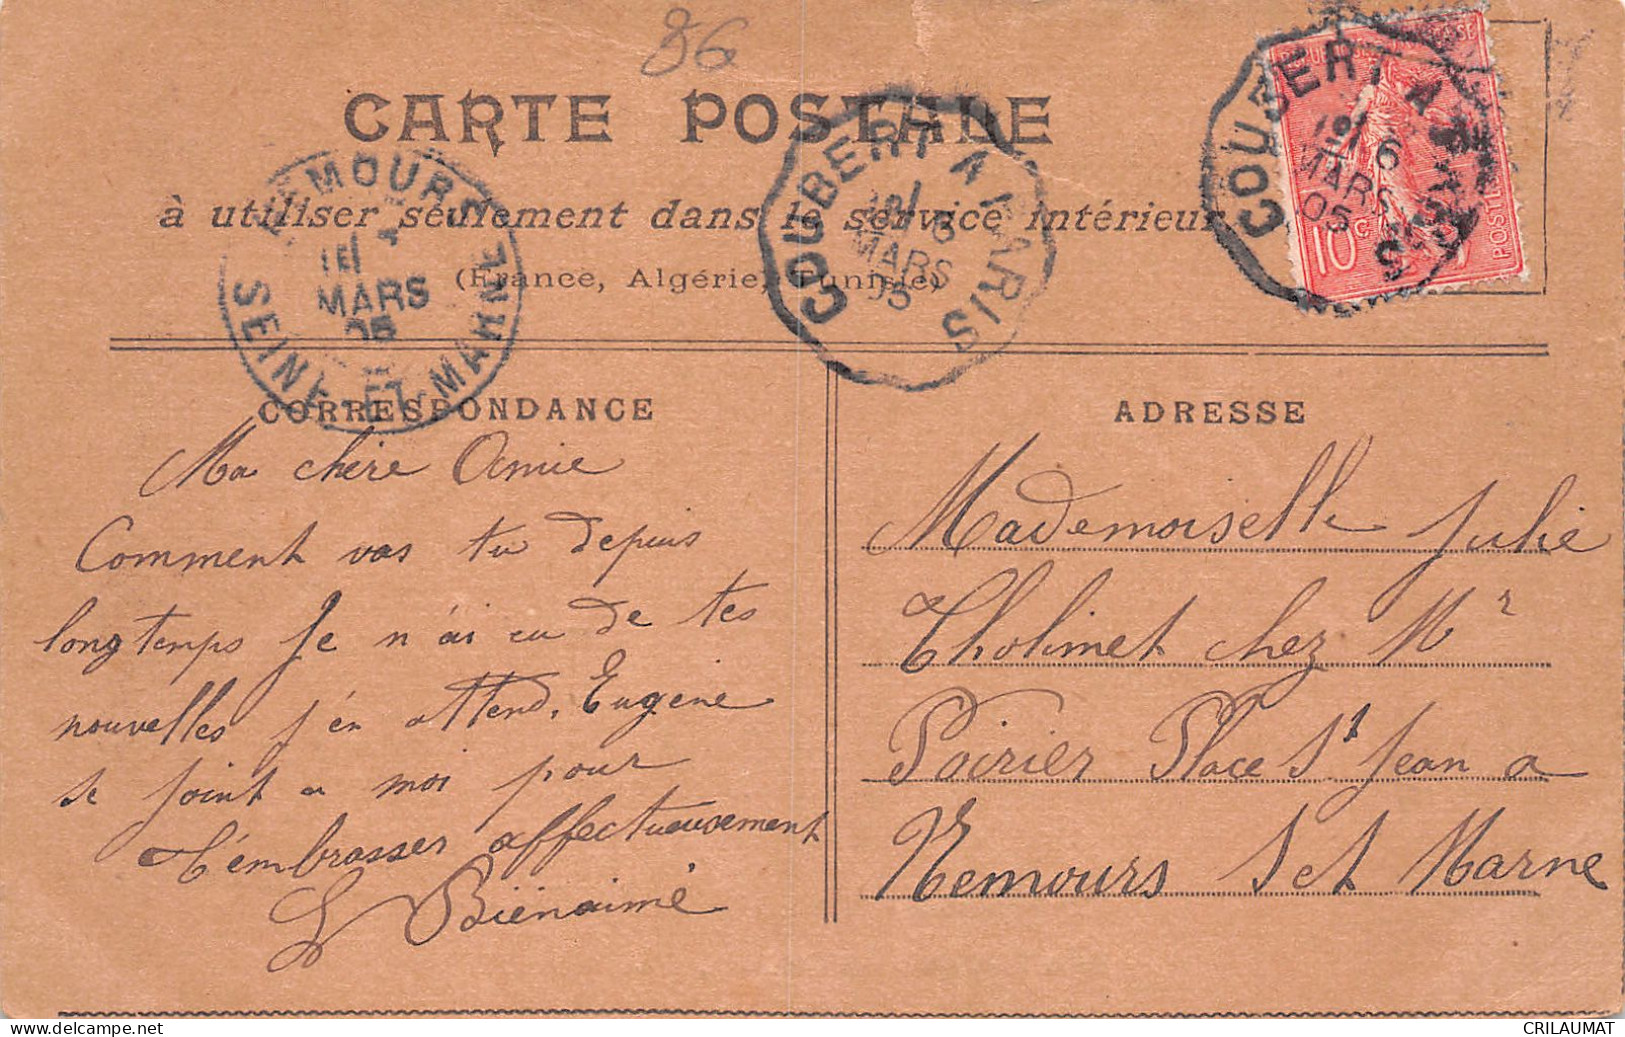 86
CARTE POSTALE
à utiliser seulement dans le service intérieur
(France, Algérie, Tunisie)
NEMOURS
MARS
05
SEINE-ET-MARNE
COUBERT A PARIS
6
MARS
05
COUBERT A PARIS
6
MARS
05
10c
POSTES
CORRESPONDANCE
Ma chère Amie
Comment vas tu depuis
longtemps Je n'ai eu de tes
nouvelles j'en attend, Eugenie
se joint a moi pour
t'embrasser affectueusement
L Biénaimé
ADRESSE
Mademoiselle Julie
Tholimet chez Mr
Poirier Place St Jean a
Nemours S et Marne
www.delcampe.net
CRILAUMAT